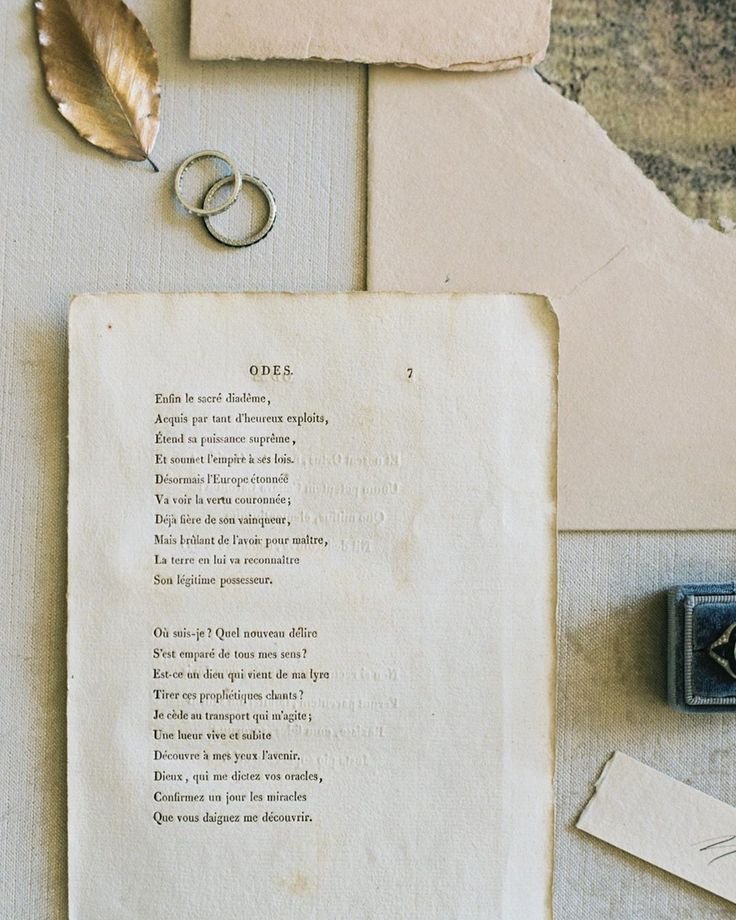 ODES. 7
Enfin le sacré diadème,
Acquis par tant d'heureux exploits,
Étend sa puissance suprême,
Et soumet l'empire à ses lois.
Désormais l'Europe étonnée
Va voir la vertu couronnée;
Déjà fière de son vainqueur,
Mais brûlant de l'avoir pour maître,
La terre en lui va reconnaître
Son légitime possesseur.
Où suis-je? Quel nouveau délire
S'est emparé de tous mes sens?
Est-ce un dieu qui vient de ma lyre
Tirer ces prophétiques chants?
Je cède au transport qui m'agite;
Une lueur vive et subite
Découvre à mes yeux l'avenir.
Dieux, qui me dictez vos oracles,
Confirmez un jour les miracles
Que vous daignez me découvrir.